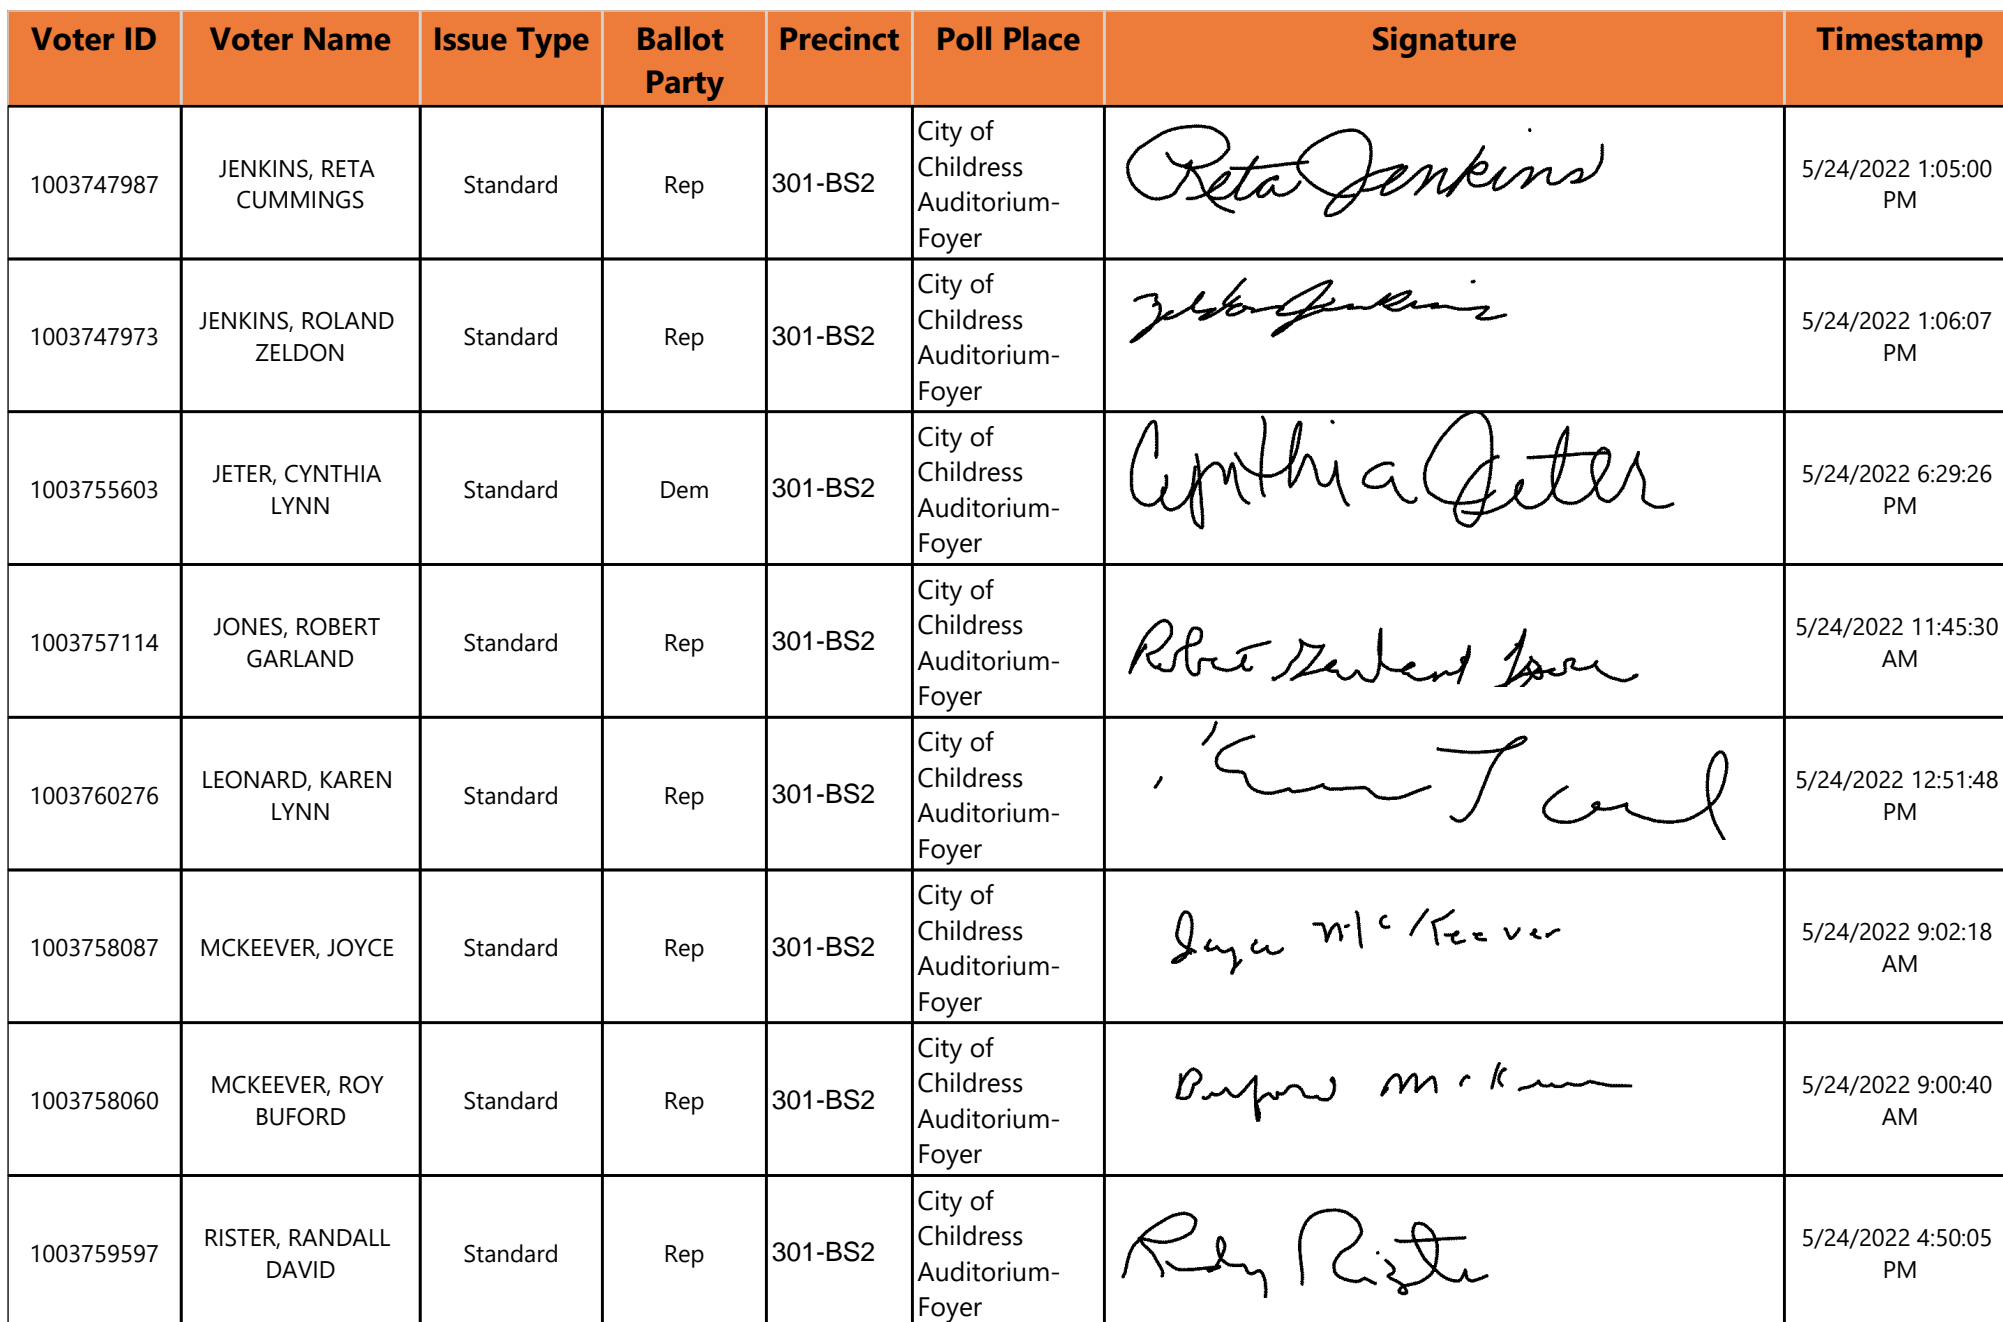 Voter ID Voter Name Issue Type Ballot Party Precinct Poll Place Signature Timestamp
1003747987 JENKINS, RETA CUMMINGS Standard Rep 301-BS2 City of Childress Auditorium-Foyer Reta Jenkins 5/24/2022 1:05:00 PM
1003747973 JENKINS, ROLAND ZELDON Standard Rep 301-BS2 City of Childress Auditorium-Foyer Zeldon Jenkins 5/24/2022 1:06:07 PM
1003755603 JETER, CYNTHIA LYNN Standard Dem 301-BS2 City of Childress Auditorium-Foyer Cynthia Jeter 5/24/2022 6:29:26 PM
1003757114 JONES, ROBERT GARLAND Standard Rep 301-BS2 City of Childress Auditorium-Foyer Robert Garland Jones 5/24/2022 11:45:30 AM
1003760276 LEONARD, KAREN LYNN Standard Rep 301-BS2 City of Childress Auditorium-Foyer 5/24/2022 12:51:48 PM
1003758087 MCKEEVER, JOYCE Standard Rep 301-BS2 City of Childress Auditorium-Foyer Joyce McKeever 5/24/2022 9:02:18 AM
1003758060 MCKEEVER, ROY BUFORD Standard Rep 301-BS2 City of Childress Auditorium-Foyer Buford McKeever 5/24/2022 9:00:40 AM
1003759597 RISTER, RANDALL DAVID Standard Rep 301-BS2 City of Childress Auditorium-Foyer Randy Rister 5/24/2022 4:50:05 PM